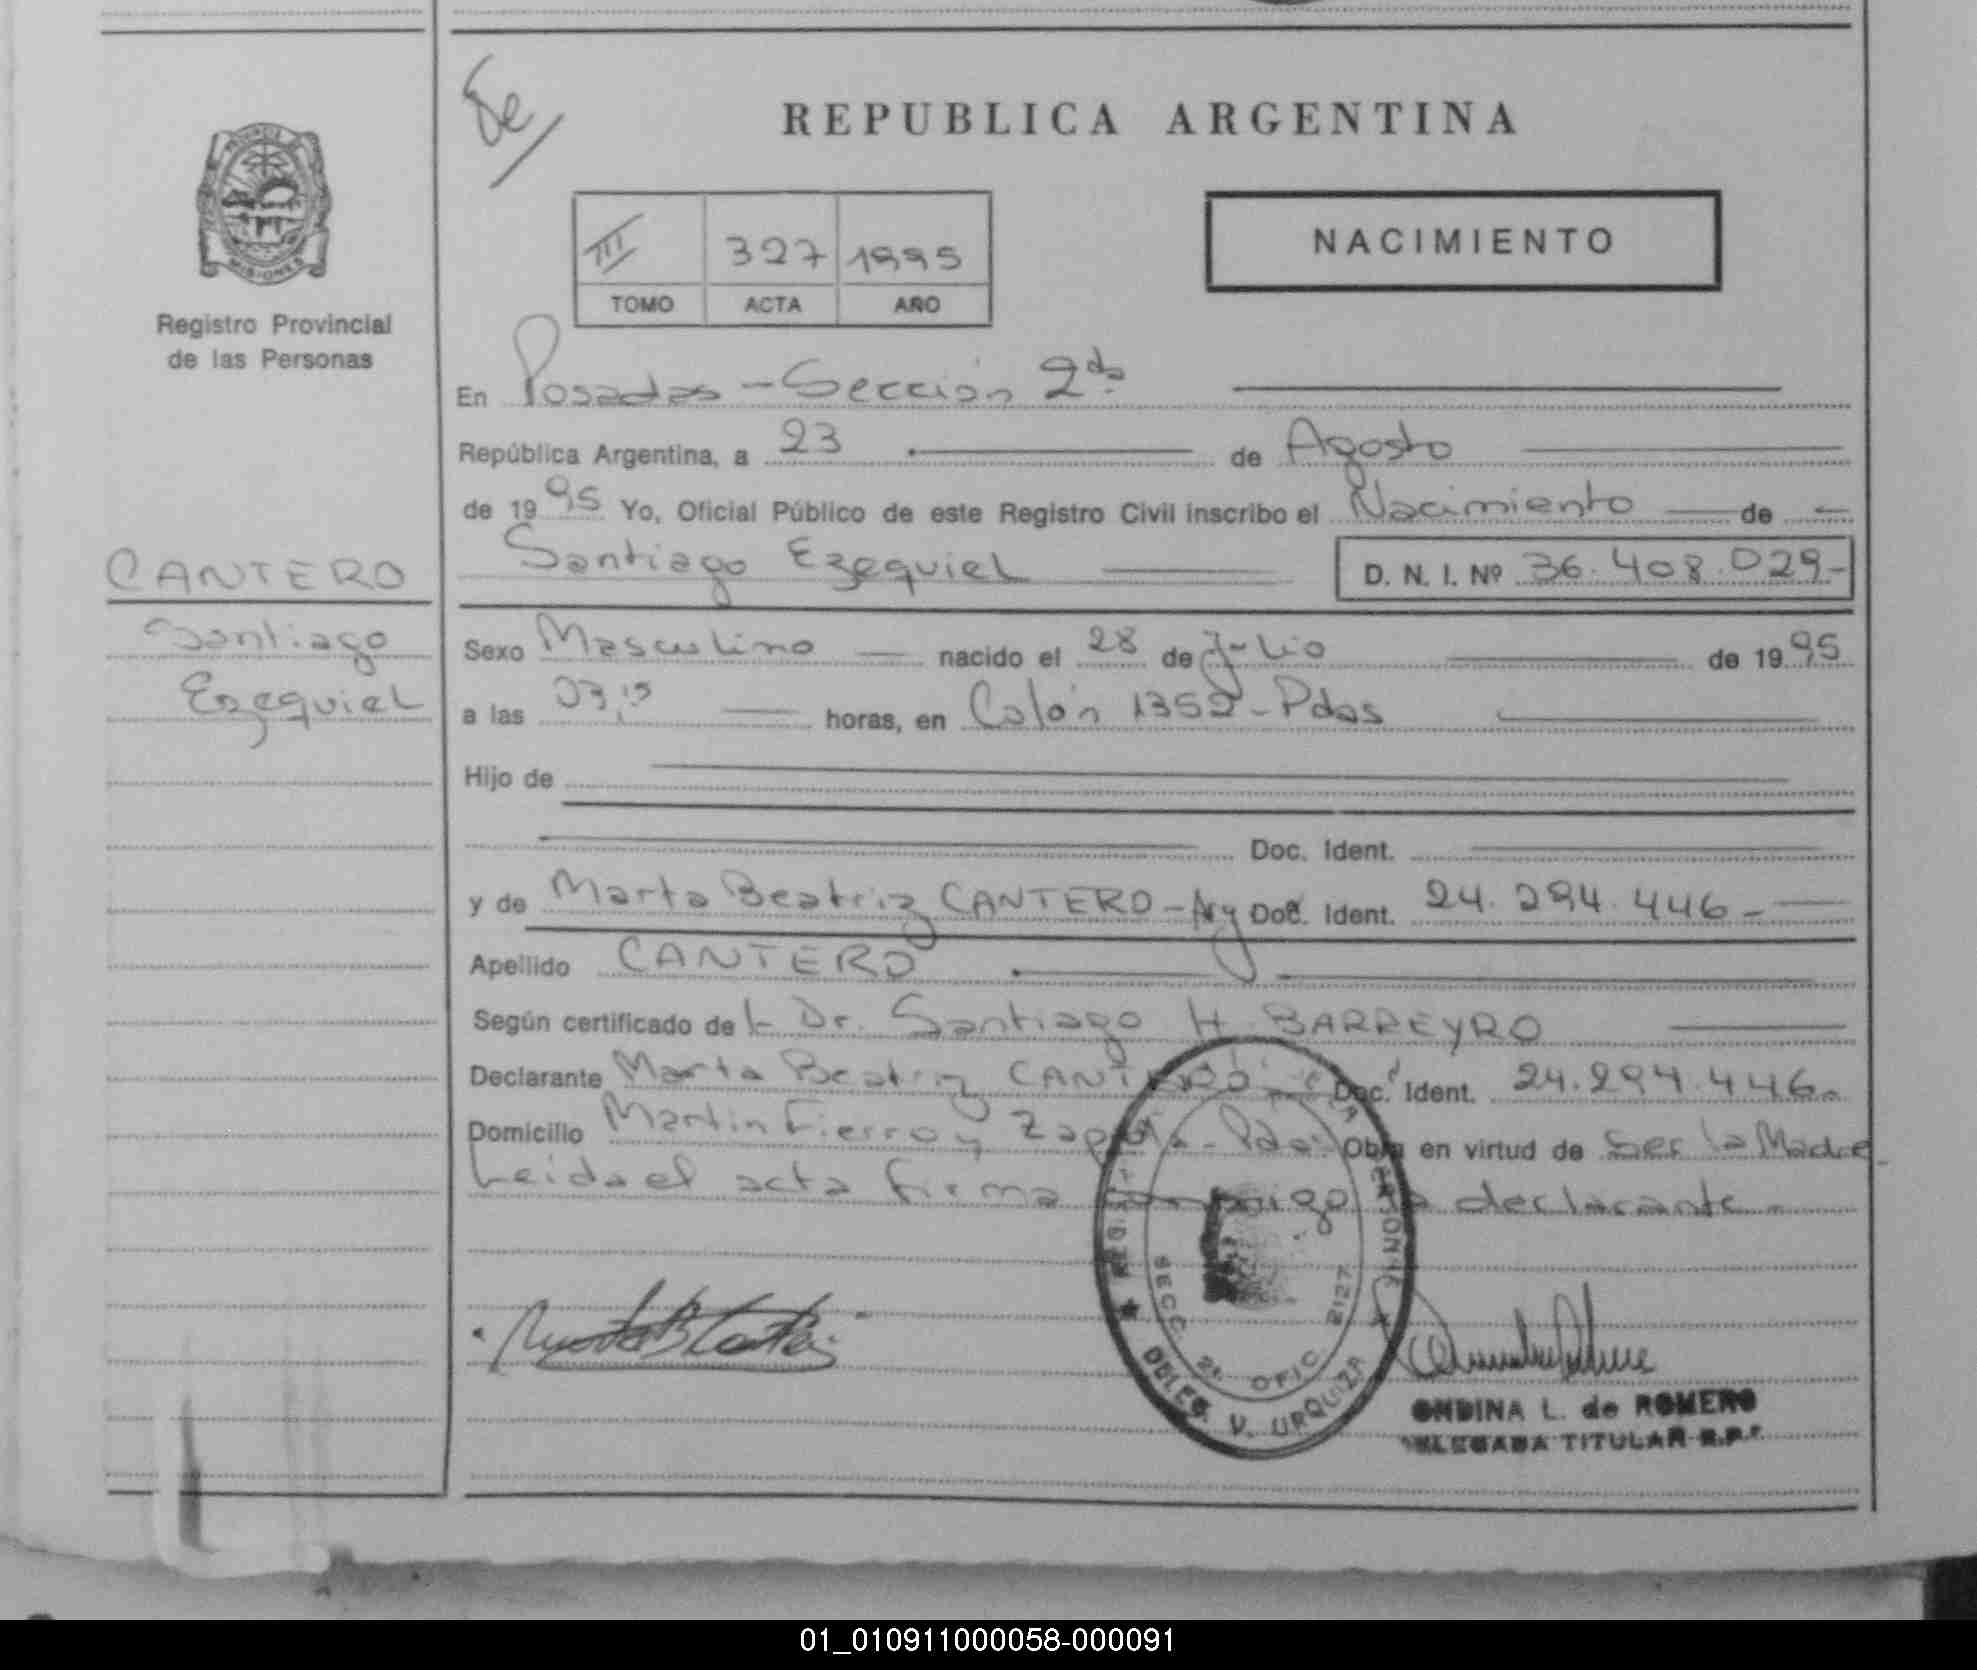 REPUBLICA ARGENTINA
III 327 1995
TOMO ACTA AÑO
NACIMIENTO
MISIONES
Registro Provincial
de las Personas
CANTERO
Santiago
Ezequiel
En Posadas - Sección 2da
República Argentina, a 23 de Agosto
de 1995 Yo, Oficial Público de este Registro Civil inscribo el Nacimiento de
Santiago Ezequiel D. N. I. Nº 36.408.029-
Sexo Masculino nacido el 28 de Julio de 1995
a las 03,15 horas, en Colón 1352 - Pdas
Hijo de
Doc. Ident.
y de Marta Beatriz CANTERO - Arg Doc. Ident. 24.294.446-
Apellido CANTERO
Según certificado del Dr. Santiago H. BARREYRO
Declarante Marta Beatriz CANTERO Doc. Ident. 24.294.446.
Domicilio Martin Fierro y Zapiola - Pdas Obra en virtud de Ser la Madre
Leida el acta firma conmigo la declarante.
SECC. 2a. OFIC. 2127
DELEG. V. URQUIZA
ONDINA L. de ROMERO
DELEGADA TITULAR R.P.P.
01_010911000058-000091